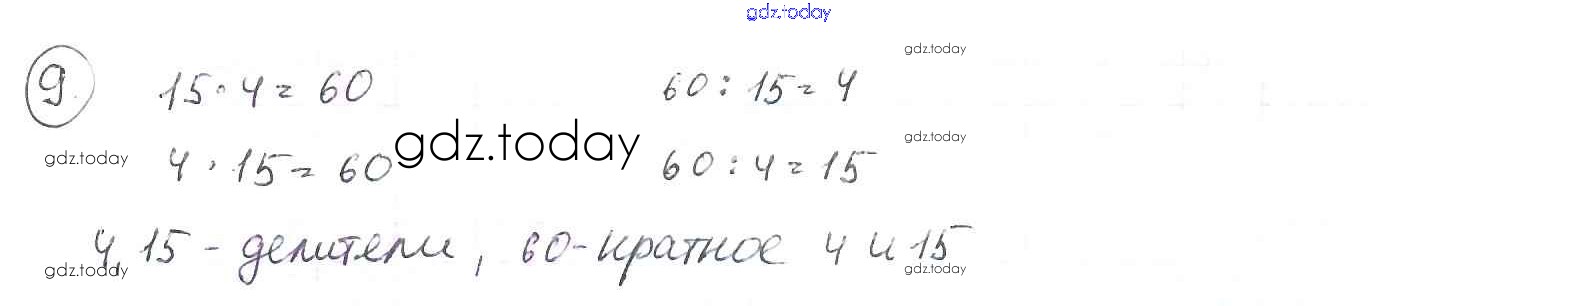 gdz.today
gdz.today
9. 15·4=60 60:15=4
gdz.today
gdz.today
gdz.today 4·15=60 60:4=15
4, 15 - делители, 60-кратное 4 и 15
gdz.today gdz.today